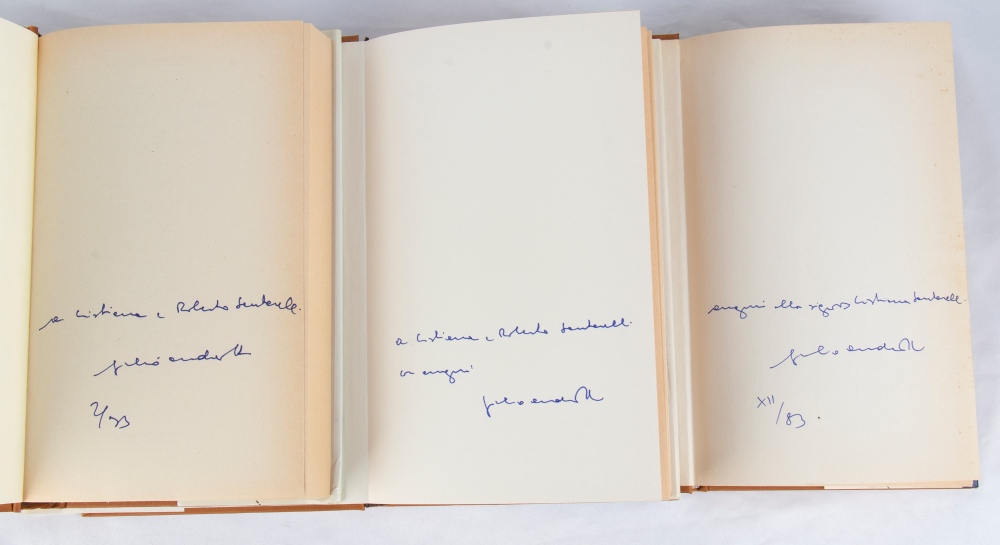 a Cristiana e Roberto Santarelli
giulio andreotti
a Cristiana e Roberto Santarelli
con auguri
giulio andreotti
auguri alla signora Cristiana Santarelli
giulio andreotti
XII/83.